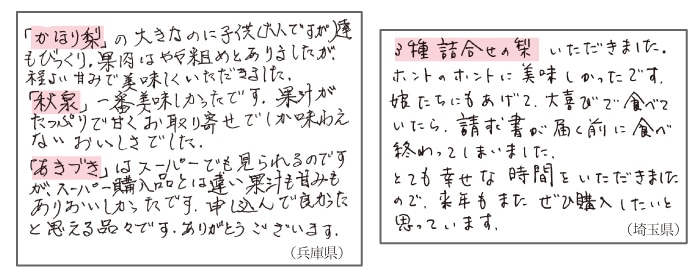 「かほり梨」の大きなのに子供(大人ですが)達
もびっくり。果肉はやや粗めとありましたが、
程よい甘みで美味しくいただきました。
「秋泉」一番美味しかったです。果汁が
たっぷりで甘くお取り寄せでしか味わえ
ないおいしさでした。
「あきづき」はスーパーでも見られるのです
が、スーパー購入品とは違い果汁も甘みも
ありおいしかったです。申し込んで良かった
と思える品々です。ありがとうございます。
(兵庫県)
3種詰合せの梨 いただきました。
ホントのホントに美味しかったです。
娘たちにもあげて、大喜びで食べて
いたら、請求書が届く前に食べ
終わってしまいました。
とても幸せな時間をいただきました
ので、来年もまたぜひ購入したいと
思っています。
(埼玉県)